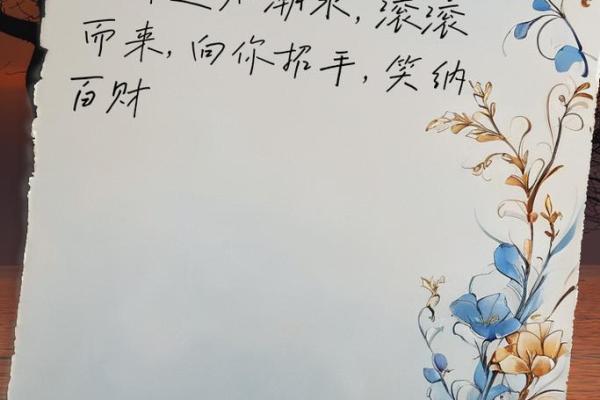 ,滚滚
而来,向你招手,笑纳
百财